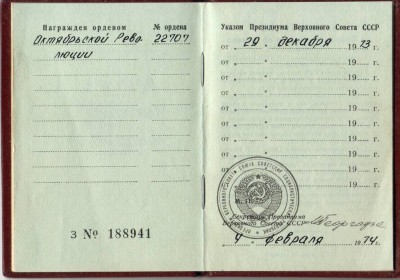 Награжден орденом № ордена
Октябрьской Рево- 22707
люции
З № 188941
Указом Президиума Верховного Совета СССР
от „ 29 “ декабря 1973 г.
от „ “ 19 г.
от „ “ 19 г.
от „ “ 19 г.
от „ “ 19 г.
от „ “ 19 г.
от „ “ 19 г.
от „ “ 19 г.
от 19 г.
М. П.
Секретарь Президиума
Верховного Совета СССР
4 февраля 1974 г.